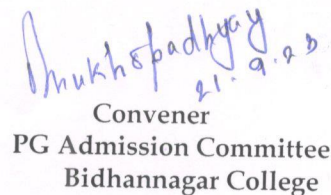 Dmukhopadhyay
21.9.23
Convener
PG Admission Committee
Bidhannagar College